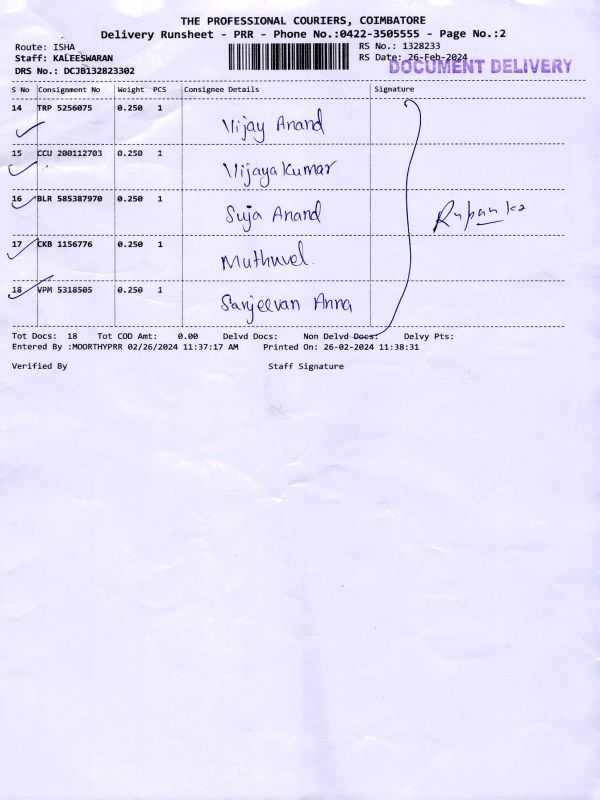 THE PROFESSIONAL COURIERS, COIMBATORE
Delivery Runsheet - PRR - Phone No.:0422-3505555 - Page No.:2
Route: ISHA
Staff: KALEESWARAN
DRS No.: DCJB132823302
RS No.: 1328233
RS Date: 26-Feb-2024
DOCUMENT DELIVERY
S No Consignment No Weight PCS Consignee Details Signature
14 TRP 5256075 0.250 1 Vijay Anand
15 CCU 200112703 0.250 1 Vijaya Kumar
16 BLR 585387970 0.250 1 Suja Anand
17 CKB 1156776 0.250 1 Muthuvel.
18 VPM 5318505 0.250 1 Sanjeevan Anna
Tot Docs: 18 Tot COD Amt: 0.00 Delvd Docs: Non Delvd Docs: Delvy Pts:
Entered By :MOORTHYPRR 02/26/2024 11:37:17 AM Printed On: 26-02-2024 11:38:31
Verified By Staff Signature